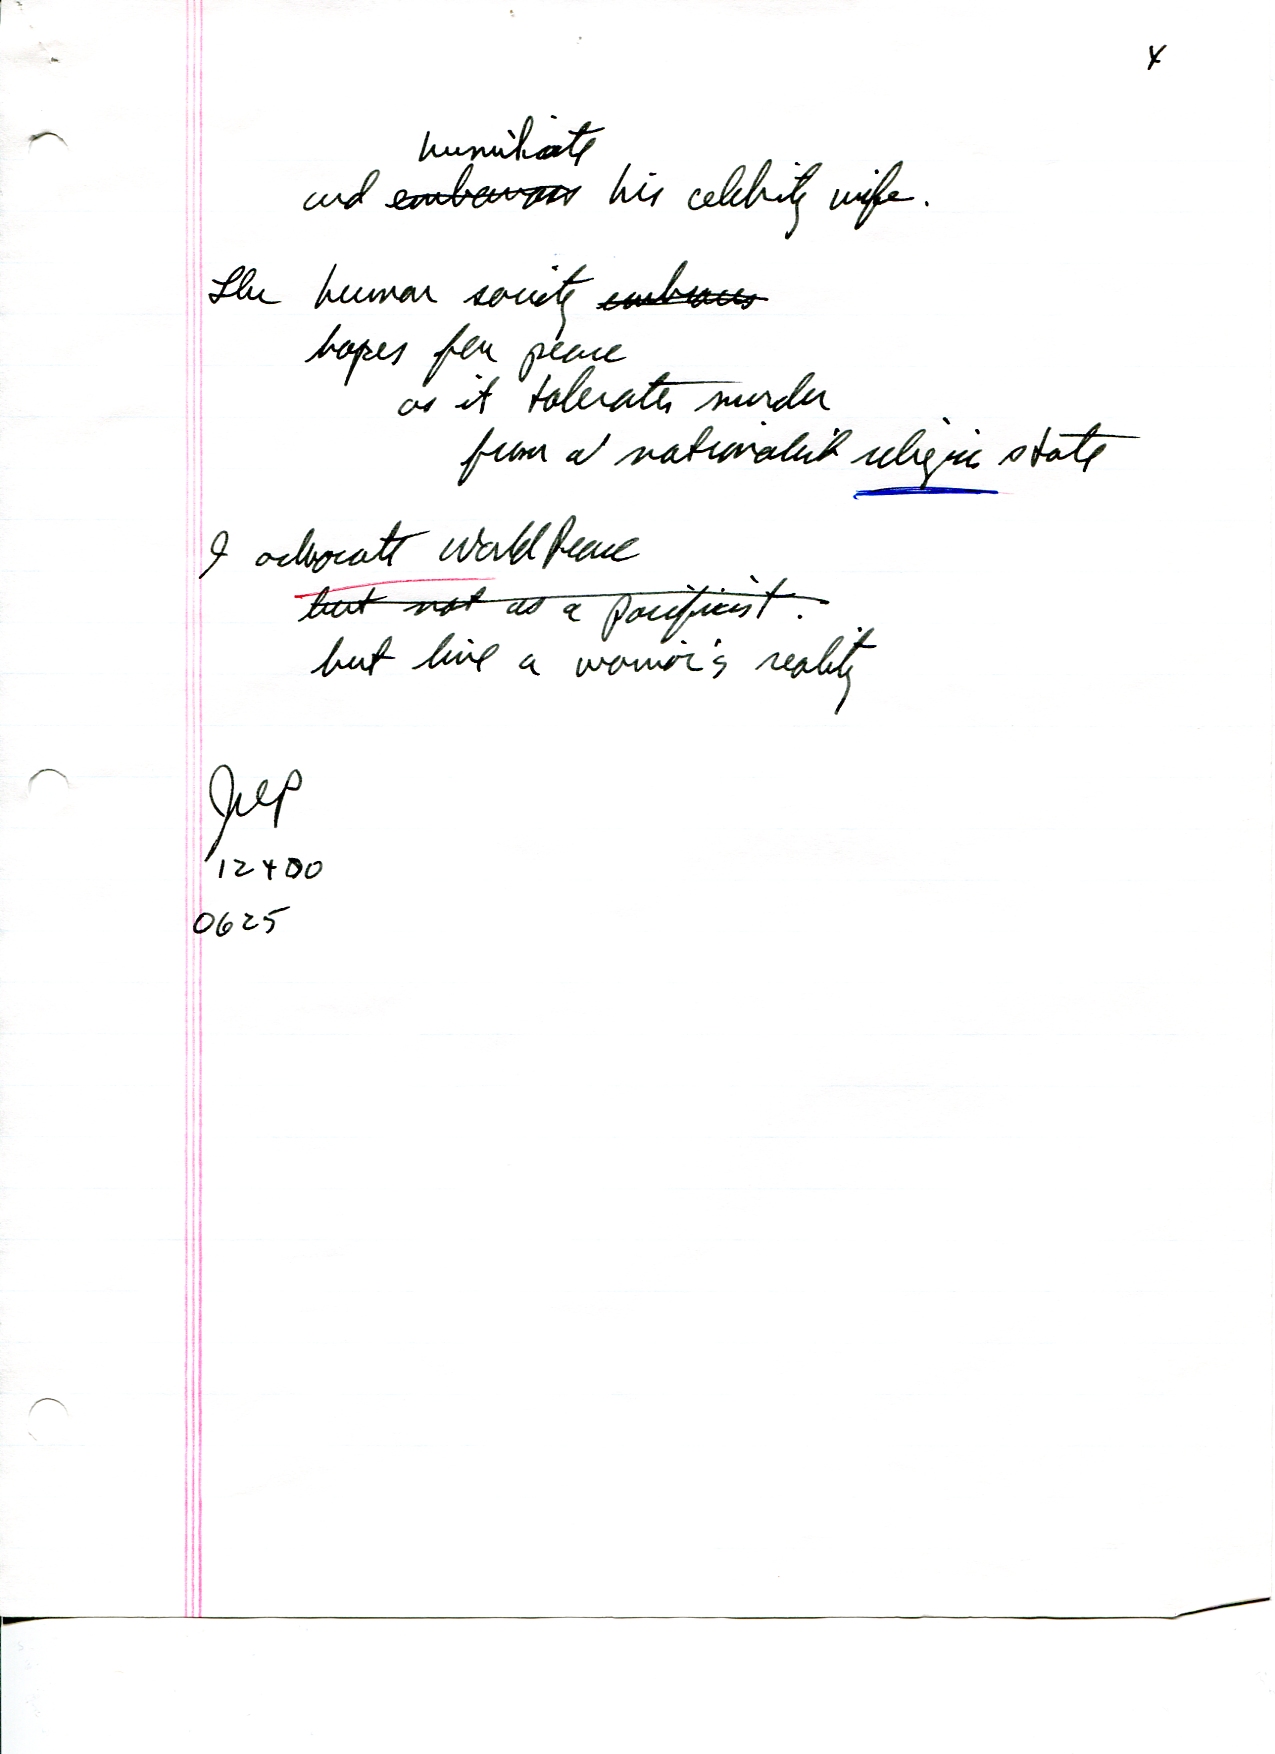 4
humiliate
and embarrass his celebrity wife.
The human society embraces
hopes for peace
as it tolerates murder
from a nationalist religic state
I advocate World Peace
but not as a pacificist.
but live a warrior's reality
JWP
12400
0625